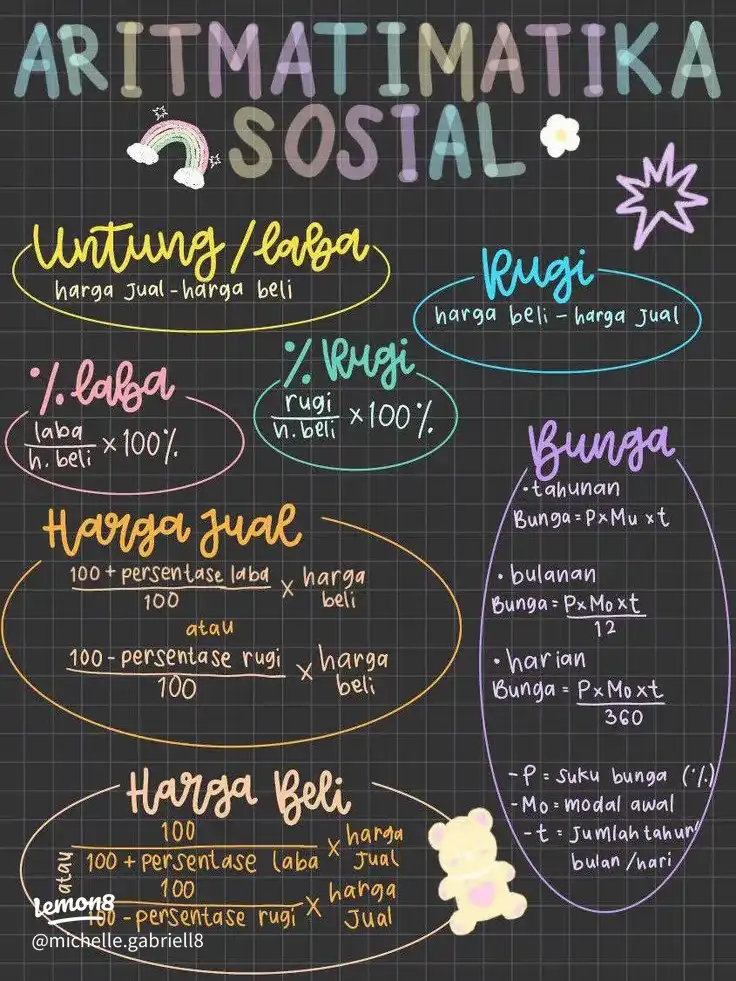 ARITMATIMATIKA
SOSIAL
Untung/laba
harga jual - harga beli
Rugi
harga beli - harga jual
% laba
laba
h. beli
× 100%
% Rugi
rugi
h. beli
× 100%
Harga Jual
100 + persentase laba
100
× harga
beli
atau
100 - persentase rugi
100
× harga
beli
Bunga
• tahunan
Bunga = P × Mu × t
• bulanan
Bunga = P × Mo × t
12
• harian
Bunga = P × Mo × t
360
- P = suku bunga (%)
- Mo = modal awal
- t = jumlah tahun
bulan/hari
Harga Beli
100
100 + persentase laba
× harga
jual
atau
100
100 - persentase rugi
× harga
jual
lemon8
@michelle.gabriell8